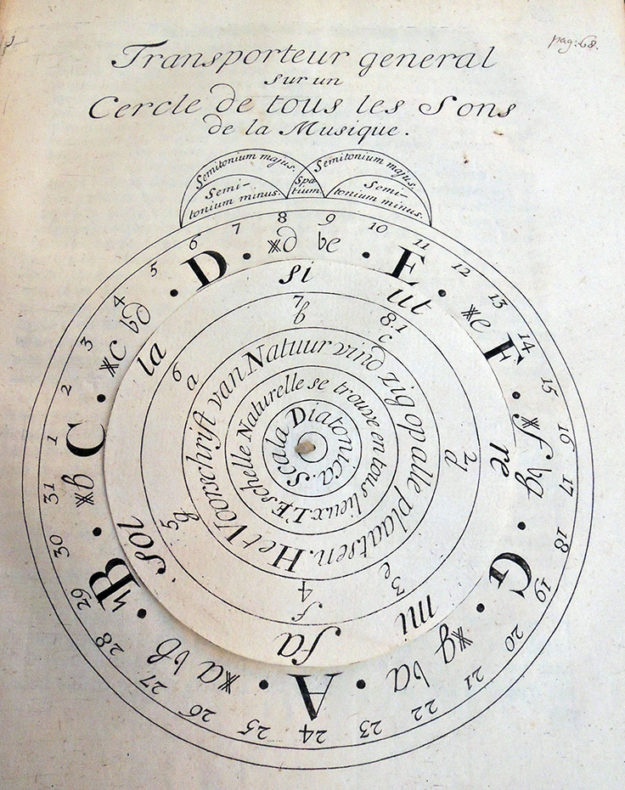 pag: 68.
Transporteur general
sur un
Cercle de tous les Sons
de la Musique.
Semitonium majus.
Semitonium majus.
Semi-
tonium minus.
Spa
tium
Semi-
tonium minus.
1 2 3 4 5 6 7 8 9 10 11 12 13 14 15 16 17 18 19 20 21 22 23 24 25 26 27 28 29 30 31
C · xc bd · D · xd be · E · xe F · xf bg · G · xg ba · A · xa bb · B · xb
ut re mi fa sol la si
8.1 2 3 4 5 6 7
c d e f g a b
Het Voorschrift van Natuur vind zig op alle plaatsen.
L'Eschelle Naturelle se trouve en tous lieux.
Scala Diatonica.